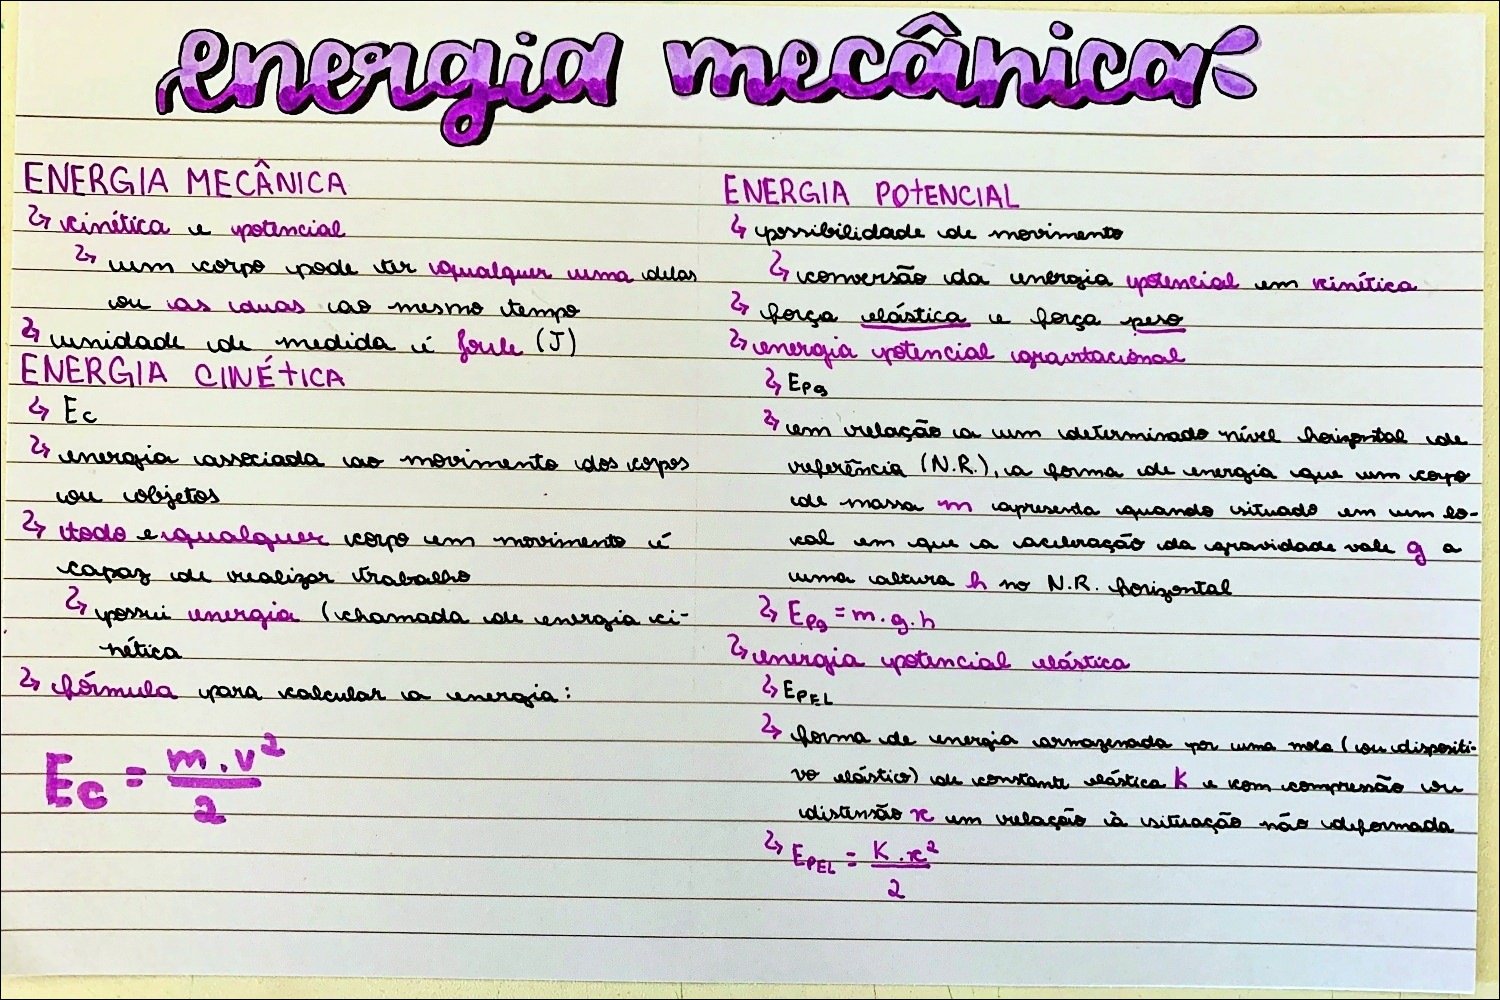 energia mecânica
ENERGIA MECÂNICA
↳ cinética e potencial
↳ um corpo pode ter qualquer uma delas
ou as duas ao mesmo tempo
↳ unidade de medida é Joule (J)
ENERGIA CINÉTICA
↳ Ec
↳ energia associada ao movimento dos copos
ou objetos
↳ todo e qualquer corpo em movimento é
capaz de realizar trabalho
↳ possui energia (chamada de energia ci-
nética
↳ fórmula para calcular a energia:
Ec = m.v²
2
ENERGIA POTENCIAL
↳ possibilidade de movimento
↳ conversão da energia potencial em cinética
↳ força elástica e força peso
↳ energia potencial gravitacional
↳ Epg
↳ em relação a um determinado nível horizontal de
referência (N.R.), a forma de energia que um corpo
de massa m apresenta quando situado em um lo-
cal em que a aceleração da gravidade vale g a
uma altura h no N.R. horizontal
↳ Epg = m.g.h
↳ energia potencial elástica
↳ EPEL
↳ forma de energia armazenada por uma mola (ou dispositi-
vo elástico) de constante elástica K e com compressão ou
distensão x em relação à situação não deformada
↳ EPEL = K.x²
2